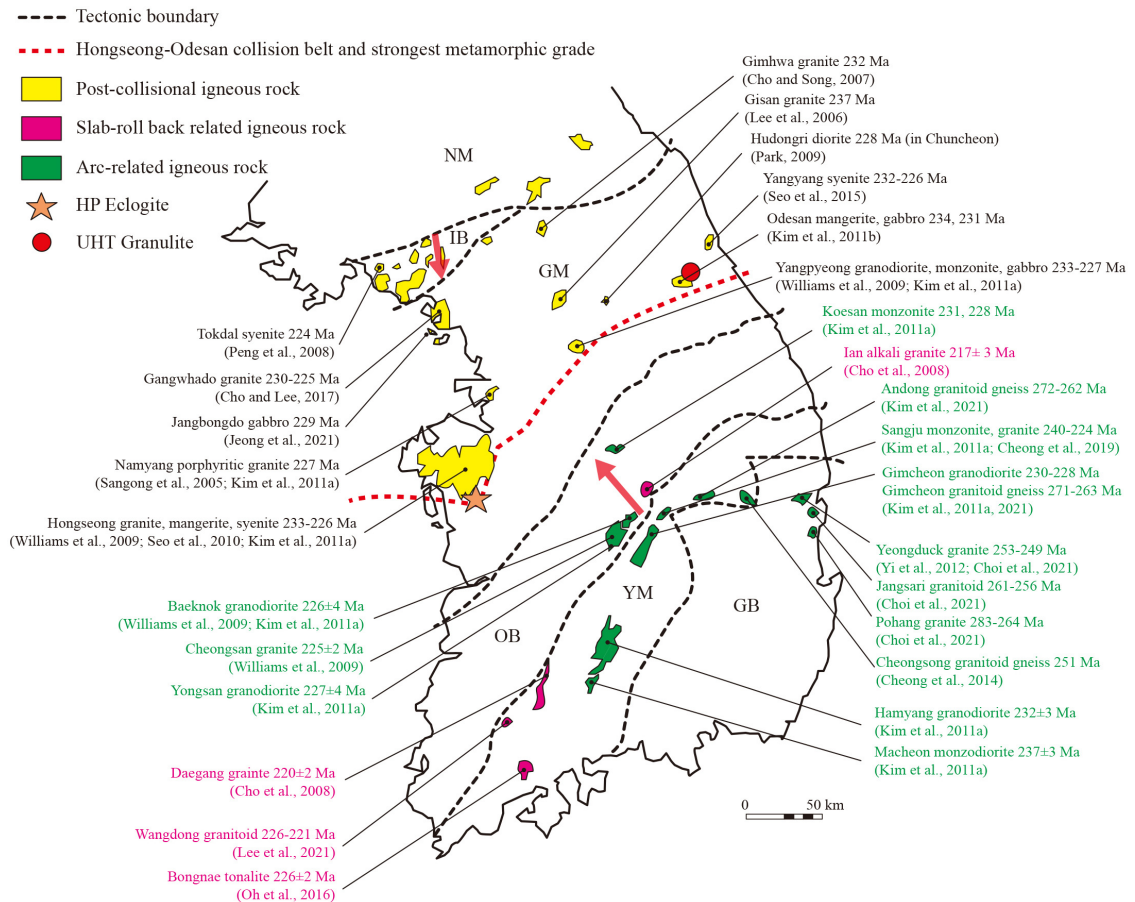 Tectonic boundary
Hongseong-Odesan collision belt and strongest metamorphic grade
Post-collisional igneous rock
Slab-roll back related igneous rock
Arc-related igneous rock
HP Eclogite
UHT Granulite
NM
IB
GM
OB
YM
GB
Gimhwa granite 232 Ma
(Cho and Song, 2007)
Gisan granite 237 Ma
(Lee et al., 2006)
Hudongri diorite 228 Ma (in Chuncheon)
(Park, 2009)
Yangyang syenite 232-226 Ma
(Seo et al., 2015)
Odesan mangerite, gabbro 234, 231 Ma
(Kim et al., 2011b)
Yangpyeong granodiorite, monzonite, gabbro 233-227 Ma
(Williams et al., 2009; Kim et al., 2011a)
Koesan monzonite 231, 228 Ma
(Kim et al., 2011a)
Ian alkali granite 217± 3 Ma
(Cho et al., 2008)
Andong granitoid gneiss 272-262 Ma
(Kim et al., 2021)
Sangju monzonite, granite 240-224 Ma
(Kim et al., 2011a; Cheong et al., 2019)
Gimcheon granodiorite 230-228 Ma
Gimcheon granitoid gneiss 271-263 Ma
(Kim et al., 2011a, 2021)
Yeongduck granite 253-249 Ma
(Yi et al., 2012; Choi et al., 2021)
Jangsari granitoid 261-256 Ma
(Choi et al., 2021)
Pohang granite 283-264 Ma
(Choi et al., 2021)
Cheongsong granitoid gneiss 251 Ma
(Cheong et al., 2014)
Hamyang granodiorite 232±3 Ma
(Kim et al., 2011a)
Macheon monzodiorite 237±3 Ma
(Kim et al., 2011a)
0 50 km
Tokdal syenite 224 Ma
(Peng et al., 2008)
Gangwhado granite 230-225 Ma
(Cho and Lee, 2017)
Jangbongdo gabbro 229 Ma
(Jeong et al., 2021)
Namyang porphyritic granite 227 Ma
(Sangong et al., 2005; Kim et al., 2011a)
Hongseong granite, mangerite, syenite 233-226 Ma
(Williams et al., 2009; Seo et al., 2010; Kim et al., 2011a)
Baeknok granodiorite 226±4 Ma
(Williams et al., 2009; Kim et al., 2011a)
Cheongsan granite 225±2 Ma
(Williams et al., 2009)
Yongsan granodiorite 227±4 Ma
(Kim et al., 2011a)
Daegang grainte 220±2 Ma
(Cho et al., 2008)
Wangdong granitoid 226-221 Ma
(Lee et al., 2021)
Bongnae tonalite 226±2 Ma
(Oh et al., 2016)